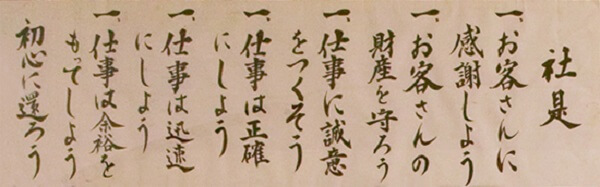 社是
一、お客さんに
感謝しよう
一、お客さんの
財産を守ろう
一、仕事に誠意
をつくそう
一、仕事は正確
にしよう
一、仕事は迅速
にしよう
一、仕事は余裕を
もってしよう
初心に還ろう